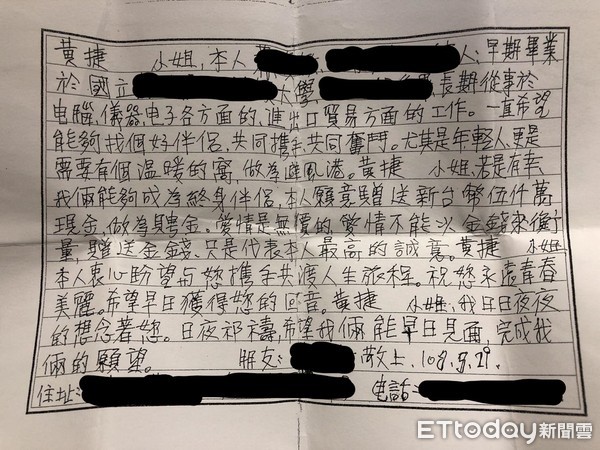 黄捷 小姐,本人 人,早期畢業
於國立 大學 長期從事於
电腦、儀器、电子各方面的、進出口貿易方面的工作。一直希望
能夠找個好伴侶,共同攜手共同奮鬥。尤其是年輕人,更是
需要有個溫暖的窩,做為避風港。黄捷 小姐,若是有幸
我倆能夠成為終身伴侶,本人願意贈送新台幣伍仟萬
現金,做為聘金。愛情是無價的,愛情不能以金錢來衡
量,贈送金錢、只是代表本人最高的誠意。黄捷 小姐
本人衷心盼望与您攜手共渡人生旅程。祝您永遠青春
美麗。希望早日獲得您的回音。黄捷 小姐,我日日夜夜
的想念著您。日夜祁禱,希望我倆能早日見面,完成我
倆的願望。 朋友: 敬上,108.9.29.
住址: 电話:
ETtoday新聞雲